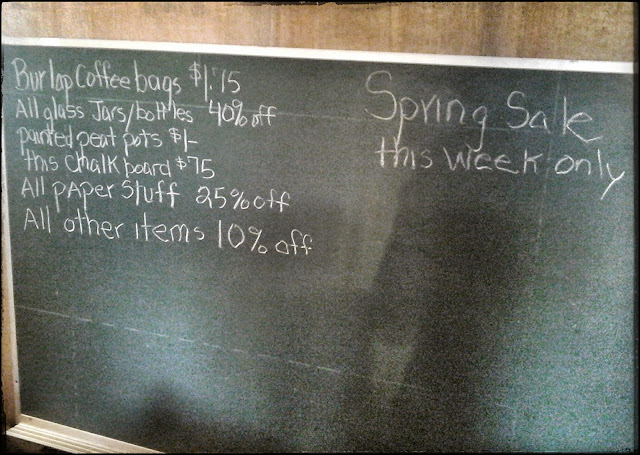 Burlap Coffee bags $1.75
All glass Jars/bottles 40% off
painted peat pots $1-
this chalk board $75
All paper Stuff 25% off
All other items 10% off
Spring Sale
this week only